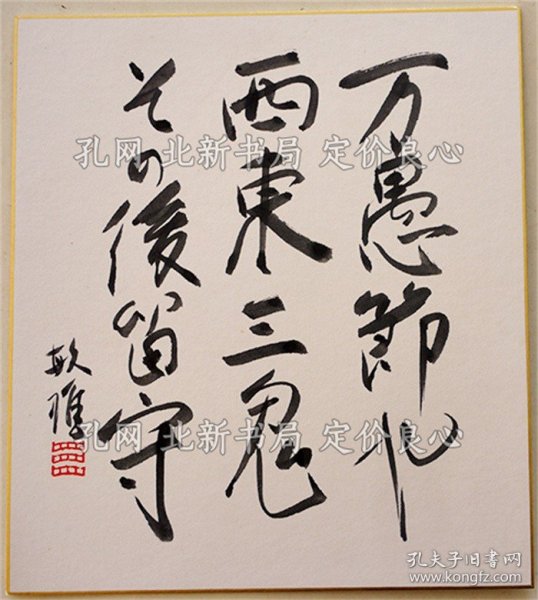 万愚節や
西東三鬼
その後留守
敏雄
孔网 北新书局 定价良心
孔网 北新书局 定价良心
孔夫子旧书网
www.kongfz.com